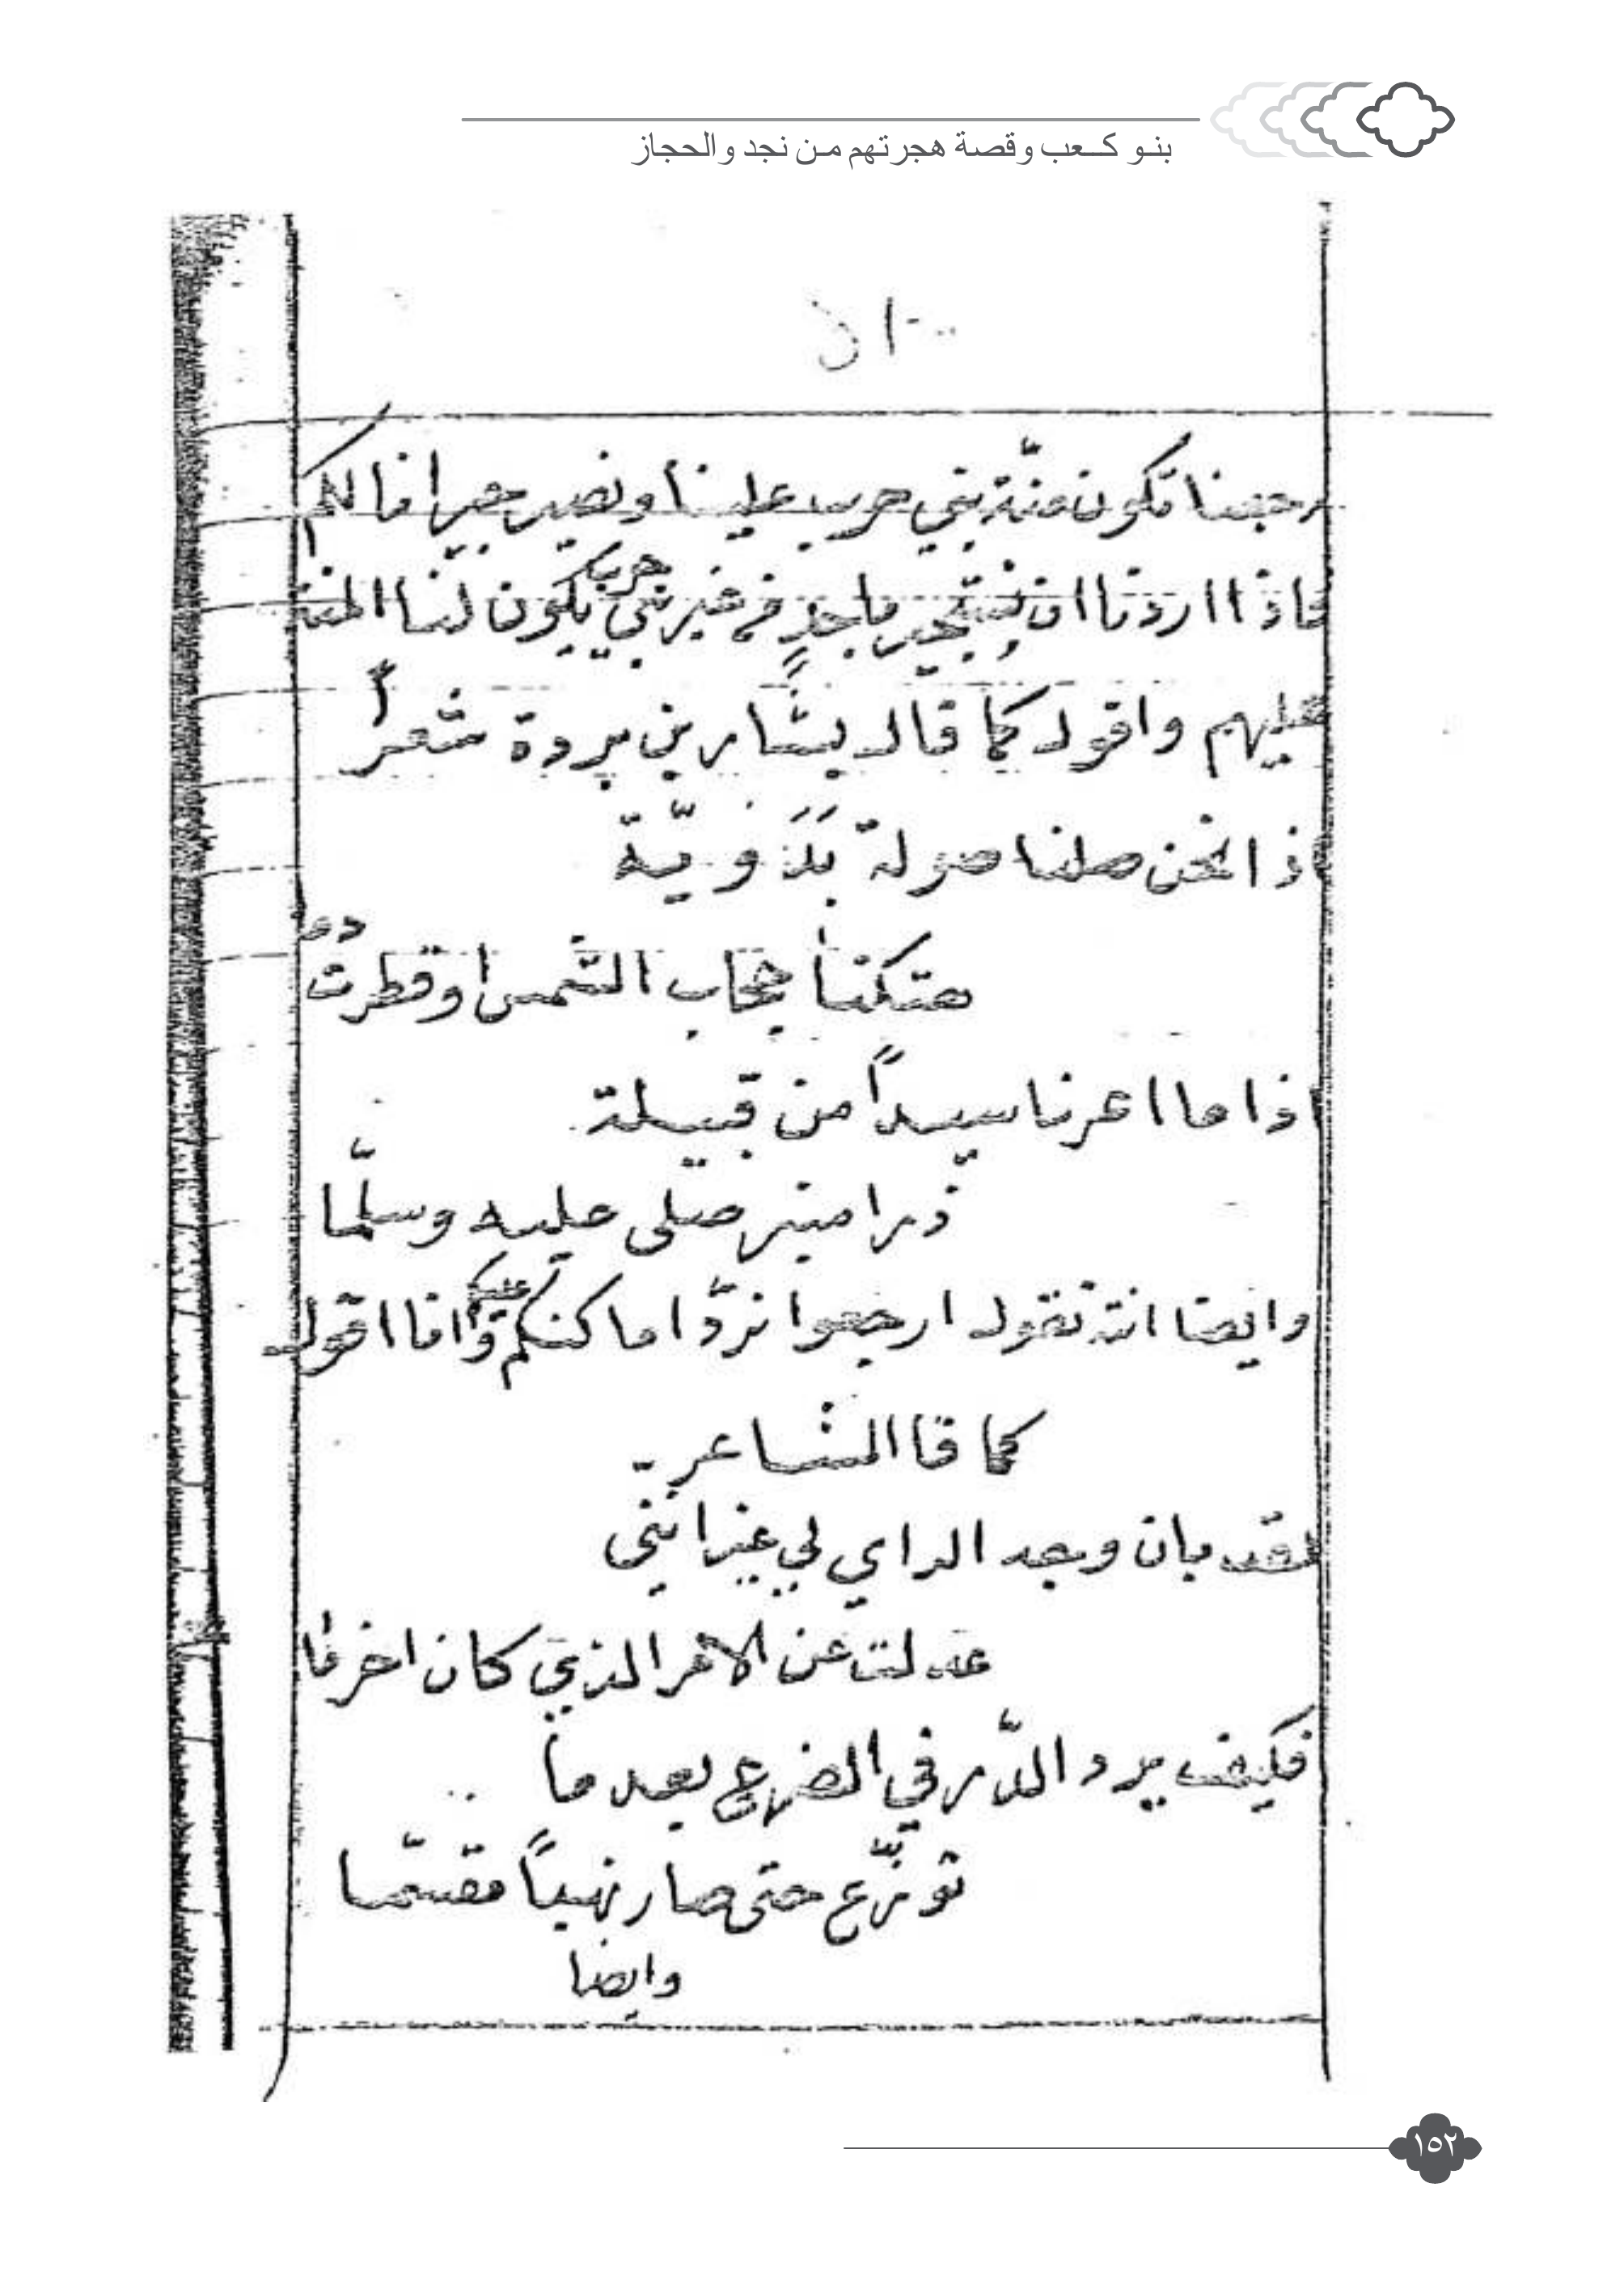 بنو كعب وقصة هجرتهم من نجد والحجاز
رجعنا تكون منّة بني حرب علينا ونصير جيرانا لكم
فاذا اردنا ان نستجير ماجدٍ من غير بني حرب يكون لنا المنة
عليهم واقول كما قال بشّار بن بردة شعراً
اذا نحن صلنا صولة بَدَويّة
هتكنا حجاب الشمس او قطرت دمًا
اذا ما اعرنا سيداً من قبيلة
ذرا منبر صلى عليه وسلّما
وايضا انت تقول ارجعوا نردّ اما كنكم عليكم وانا اقول
كما قال الشاعر
لقد بان وجه الراي لي غير انني
عدلت عن الامر الذي كان احزما
فكيف يرد الدّر في الضرع بعد ما
توزّع حتى صار نهباً مقسّما
وايضا
١٥٢